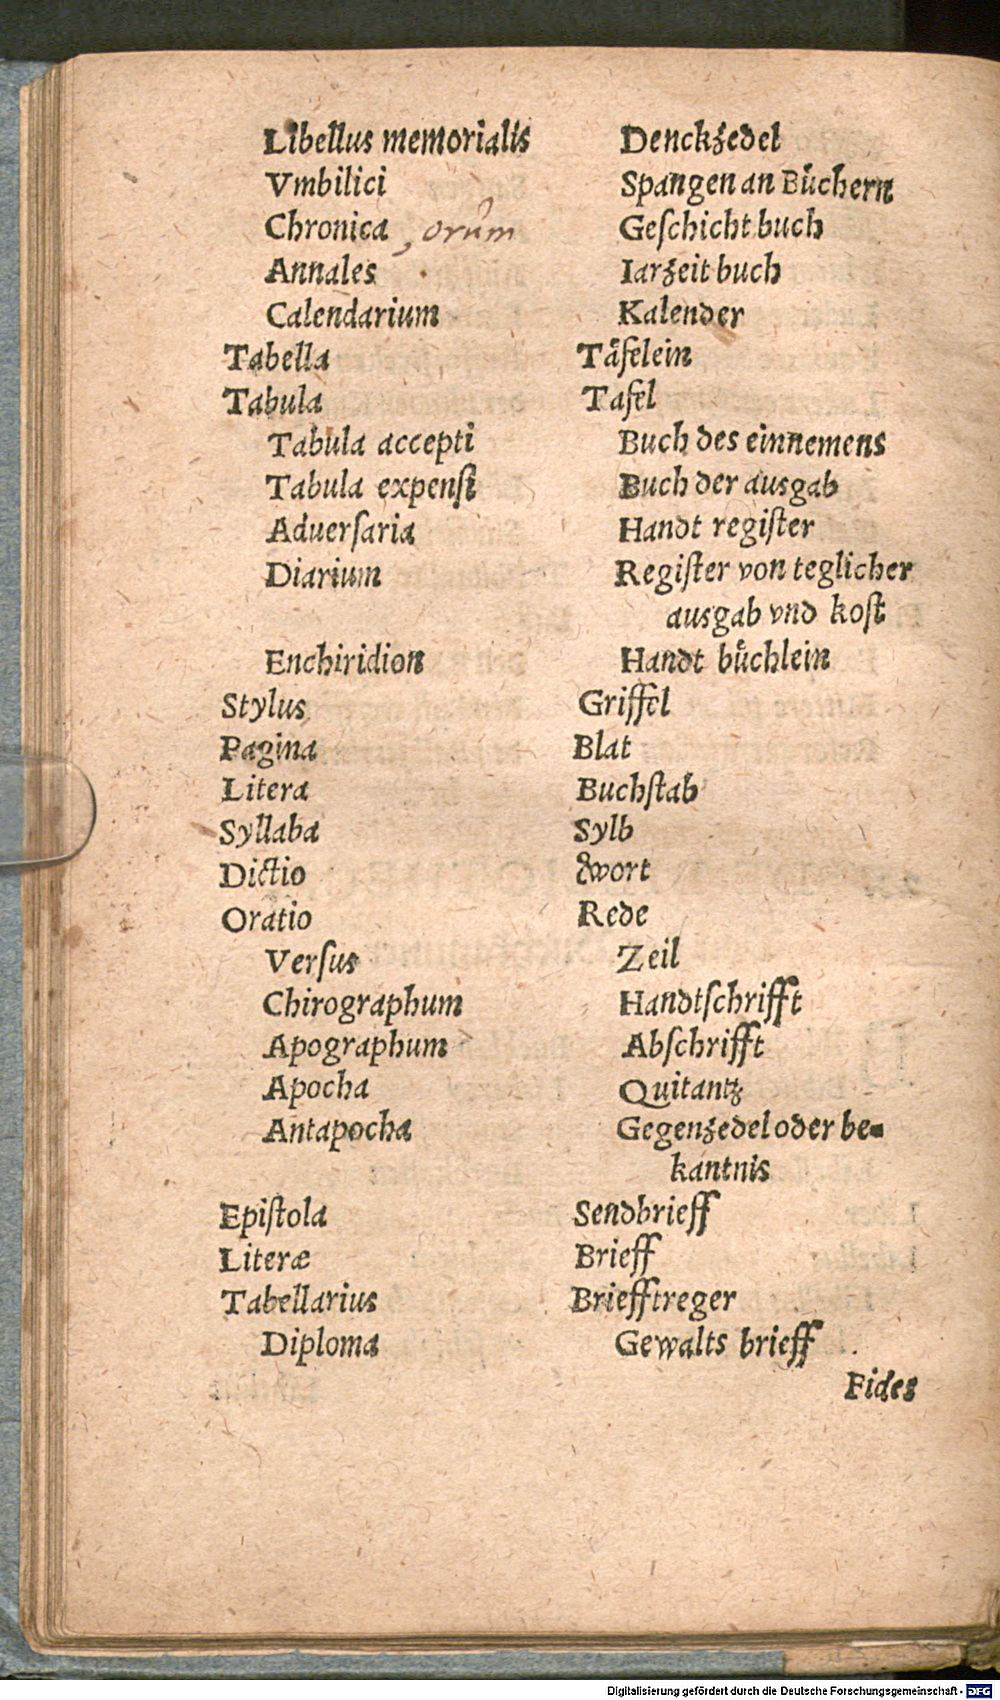 Libellus memorialis Denckzedel
Vmbilici Spangen an Bůchern
Chronica, orum̂ Geſchicht buch
Annales Iarzeit buch
Calendarium Kalender
Tabella Tåfelein
Tabula Tafel
Tabula accepti Buch des einnemens
Tabula expenſi Buch der ausgab
Aduerſaria Handt regiſter
Diarium Regiſter von teglicher
ausgab vnd koſt
Enchiridion Handt bůchlein
Stylus Griffel
Pagina Blat
Litera Buchſtab
Syllaba Sylb
Dictio wort
Oratio Rede
Verſus Zeil
Chirographum Handtſchrifft
Apographum Abſchrifft
Apocha Quitantz
Antapocha Gegenzedel oder be-
kantnis
Epiſtola Sendbrieff
Literæ Brieff
Tabellarius Brieff treger
Diploma Gewalts brieff
Fides
Digitalisierung gefördert durch die Deutsche Forschungsgemeinschaft - DFG